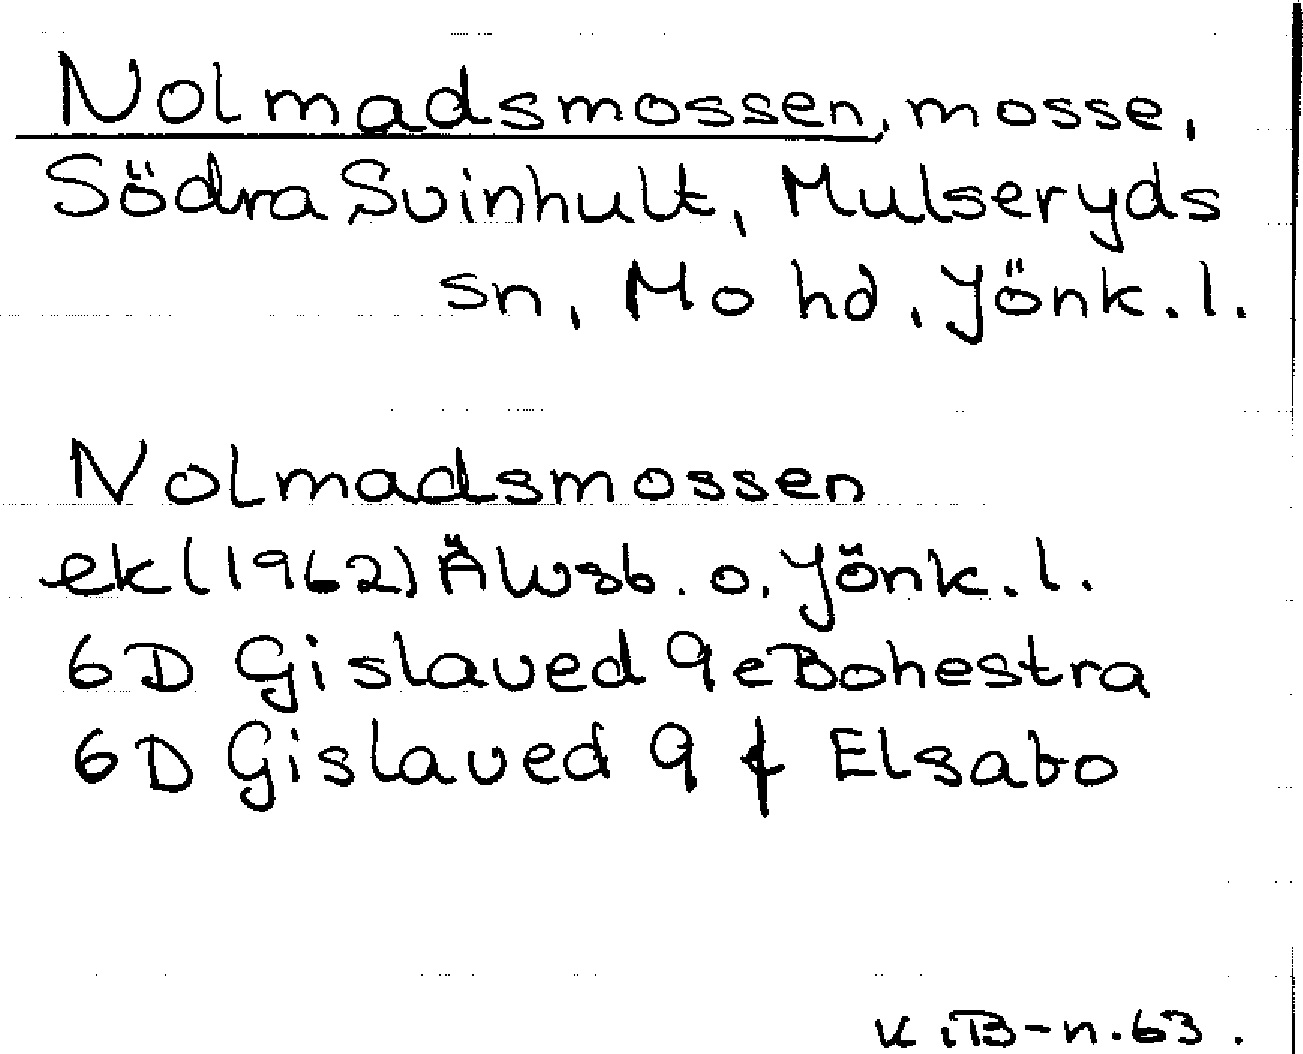 Nolmadsmossen, mosse,
Södra Svinhult, Mulseryds
sn, Mo hd, Jönk. l.
Nolmadsmossen
ek (1962) Älvsb. o. Jönk. l.
6D Gislaved 9e Bohestra
6D Gislaved 9 f Elsabo
K iB-n. 63.